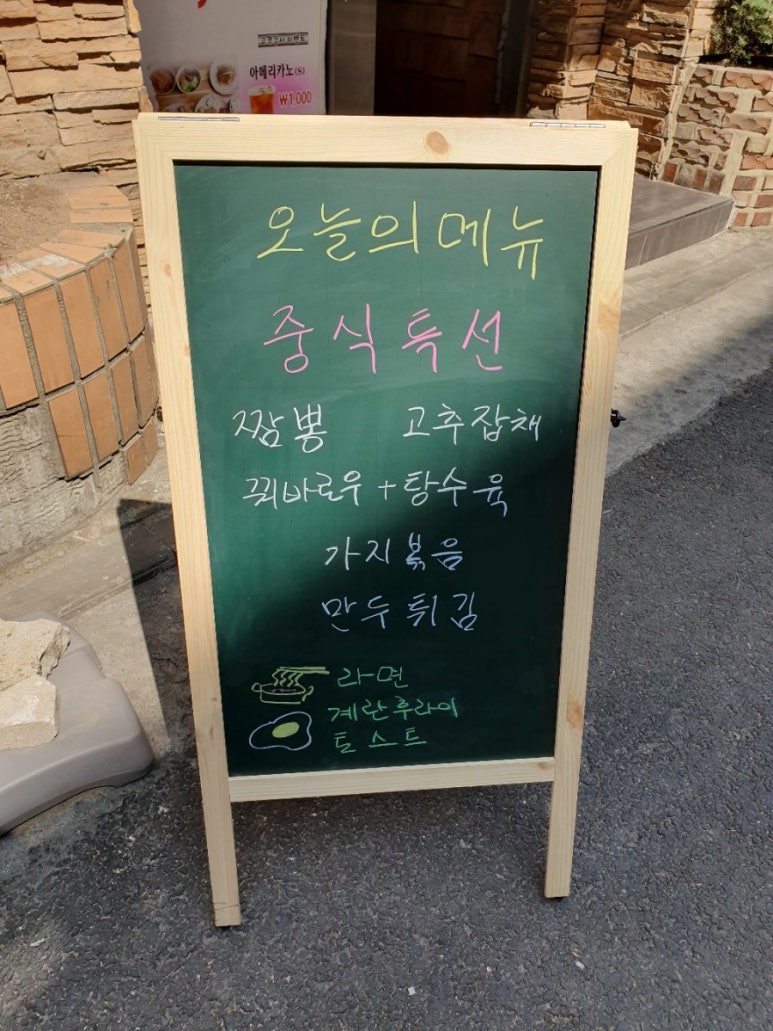 아메리카노(S)
₩1,000
오늘의메뉴
중식특선
짬뽕 고추잡채
꿔바로우+탕수육
가지볶음
만두튀김
라면
계란후라이
토스트